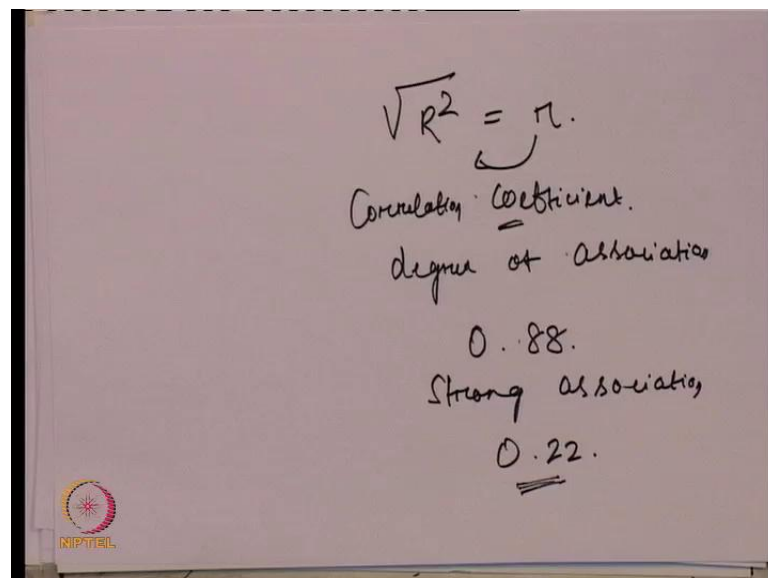 √R² = r.
Correlation coefficient.
degree of association
0.88.
Strong association
0.22.
NPTEL